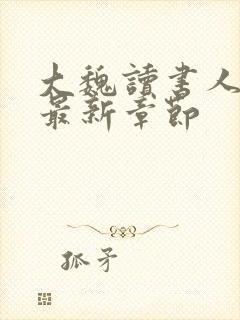 大魏讀書人
最新章節
孤矛